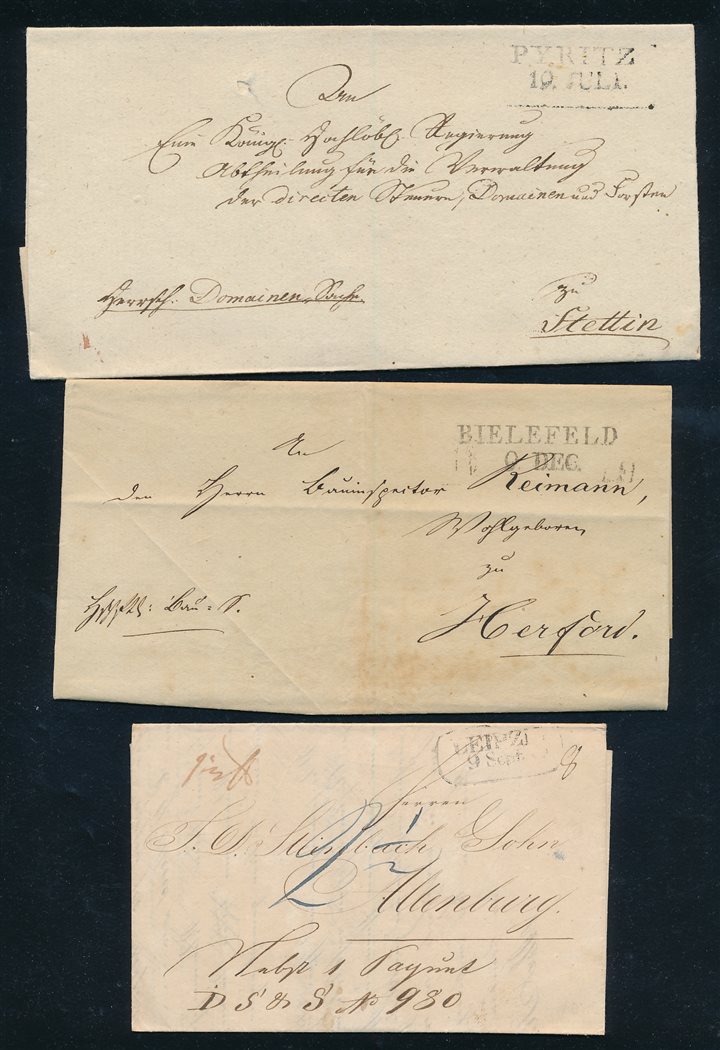 PYRITZ
19. JULI.
An
Eine Königl. Hochlöbl. Regierung
Abtheilung für die Verwaltung
der directen Steuern, Domainen und Forsten
Herrsch: Domainen Sache
zu
Stettin
BIELEFELD
9. DEC.
An
den Herrn Bauinspector Reimann,
Wohlgeboren
zu
Herford.
Bau = S.
LEIPZI
9 Sept.
8
Herren
Sohn
2 1/2
Altenburg.
Nebst 1 Paquet
D S & S No 980